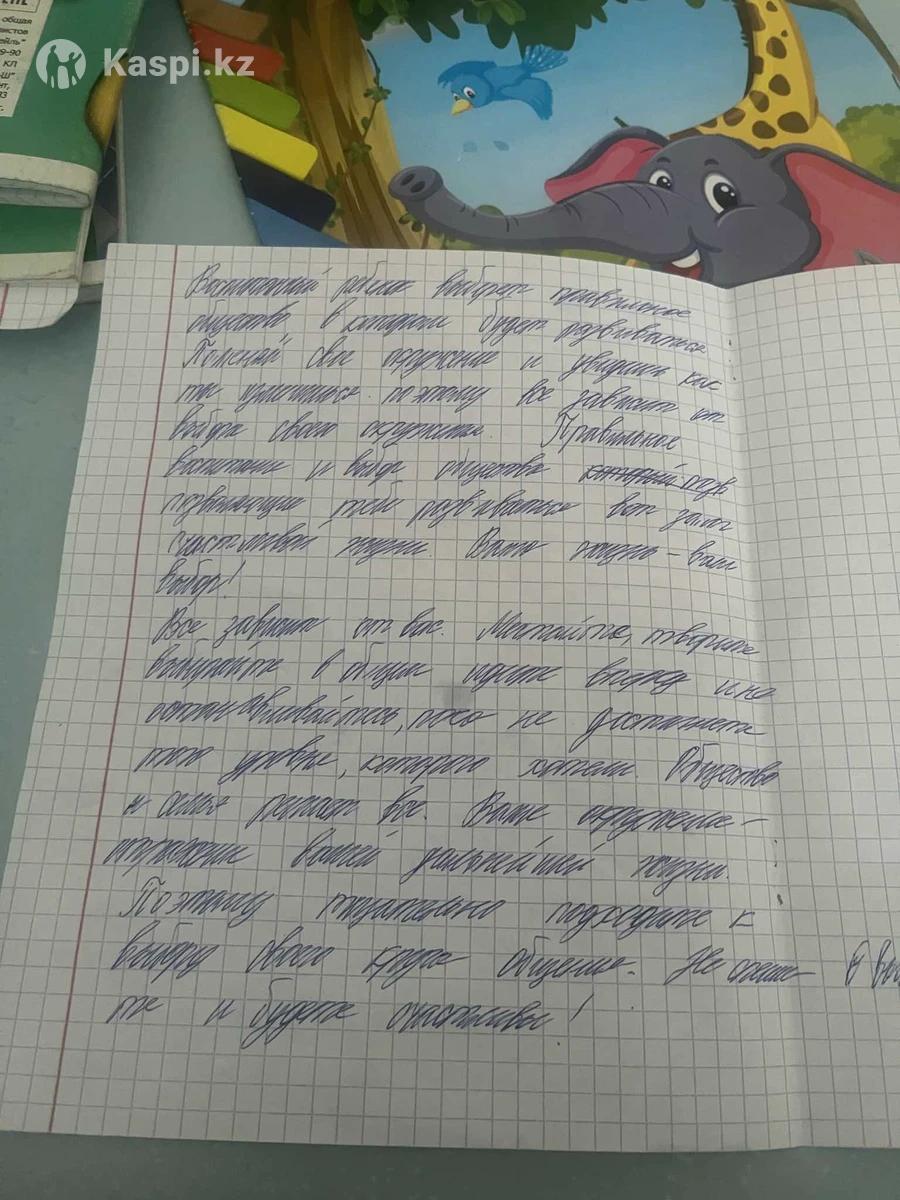 Kaspi.kz
общая
листов
9-90
КЛ
Воспитанный ребенок выберет правильное
общество в котором будет развиваться
Поменяй свое окружение и увидишь как
ты изменишься поэтому все зависит от
выбора своего окружения Правильное
воспитание и выбор общества который позв
позволяющие тебе развиваться вот залог
счастливой жизни. Ваша жизнь – ваш
выбор!
Все зависит от вас. Мечтайте, творите
выбирайте в общем идите вперед и не
останавливайтесь, пока не достигнете
того уровня, которого хотели. Общество
и семья решает все. Ваше окружение –
отражение вашей дальнейшей жизни.
Поэтому тщательно подходите к
выбору своего круга общения. Не
те и будете счастливы!